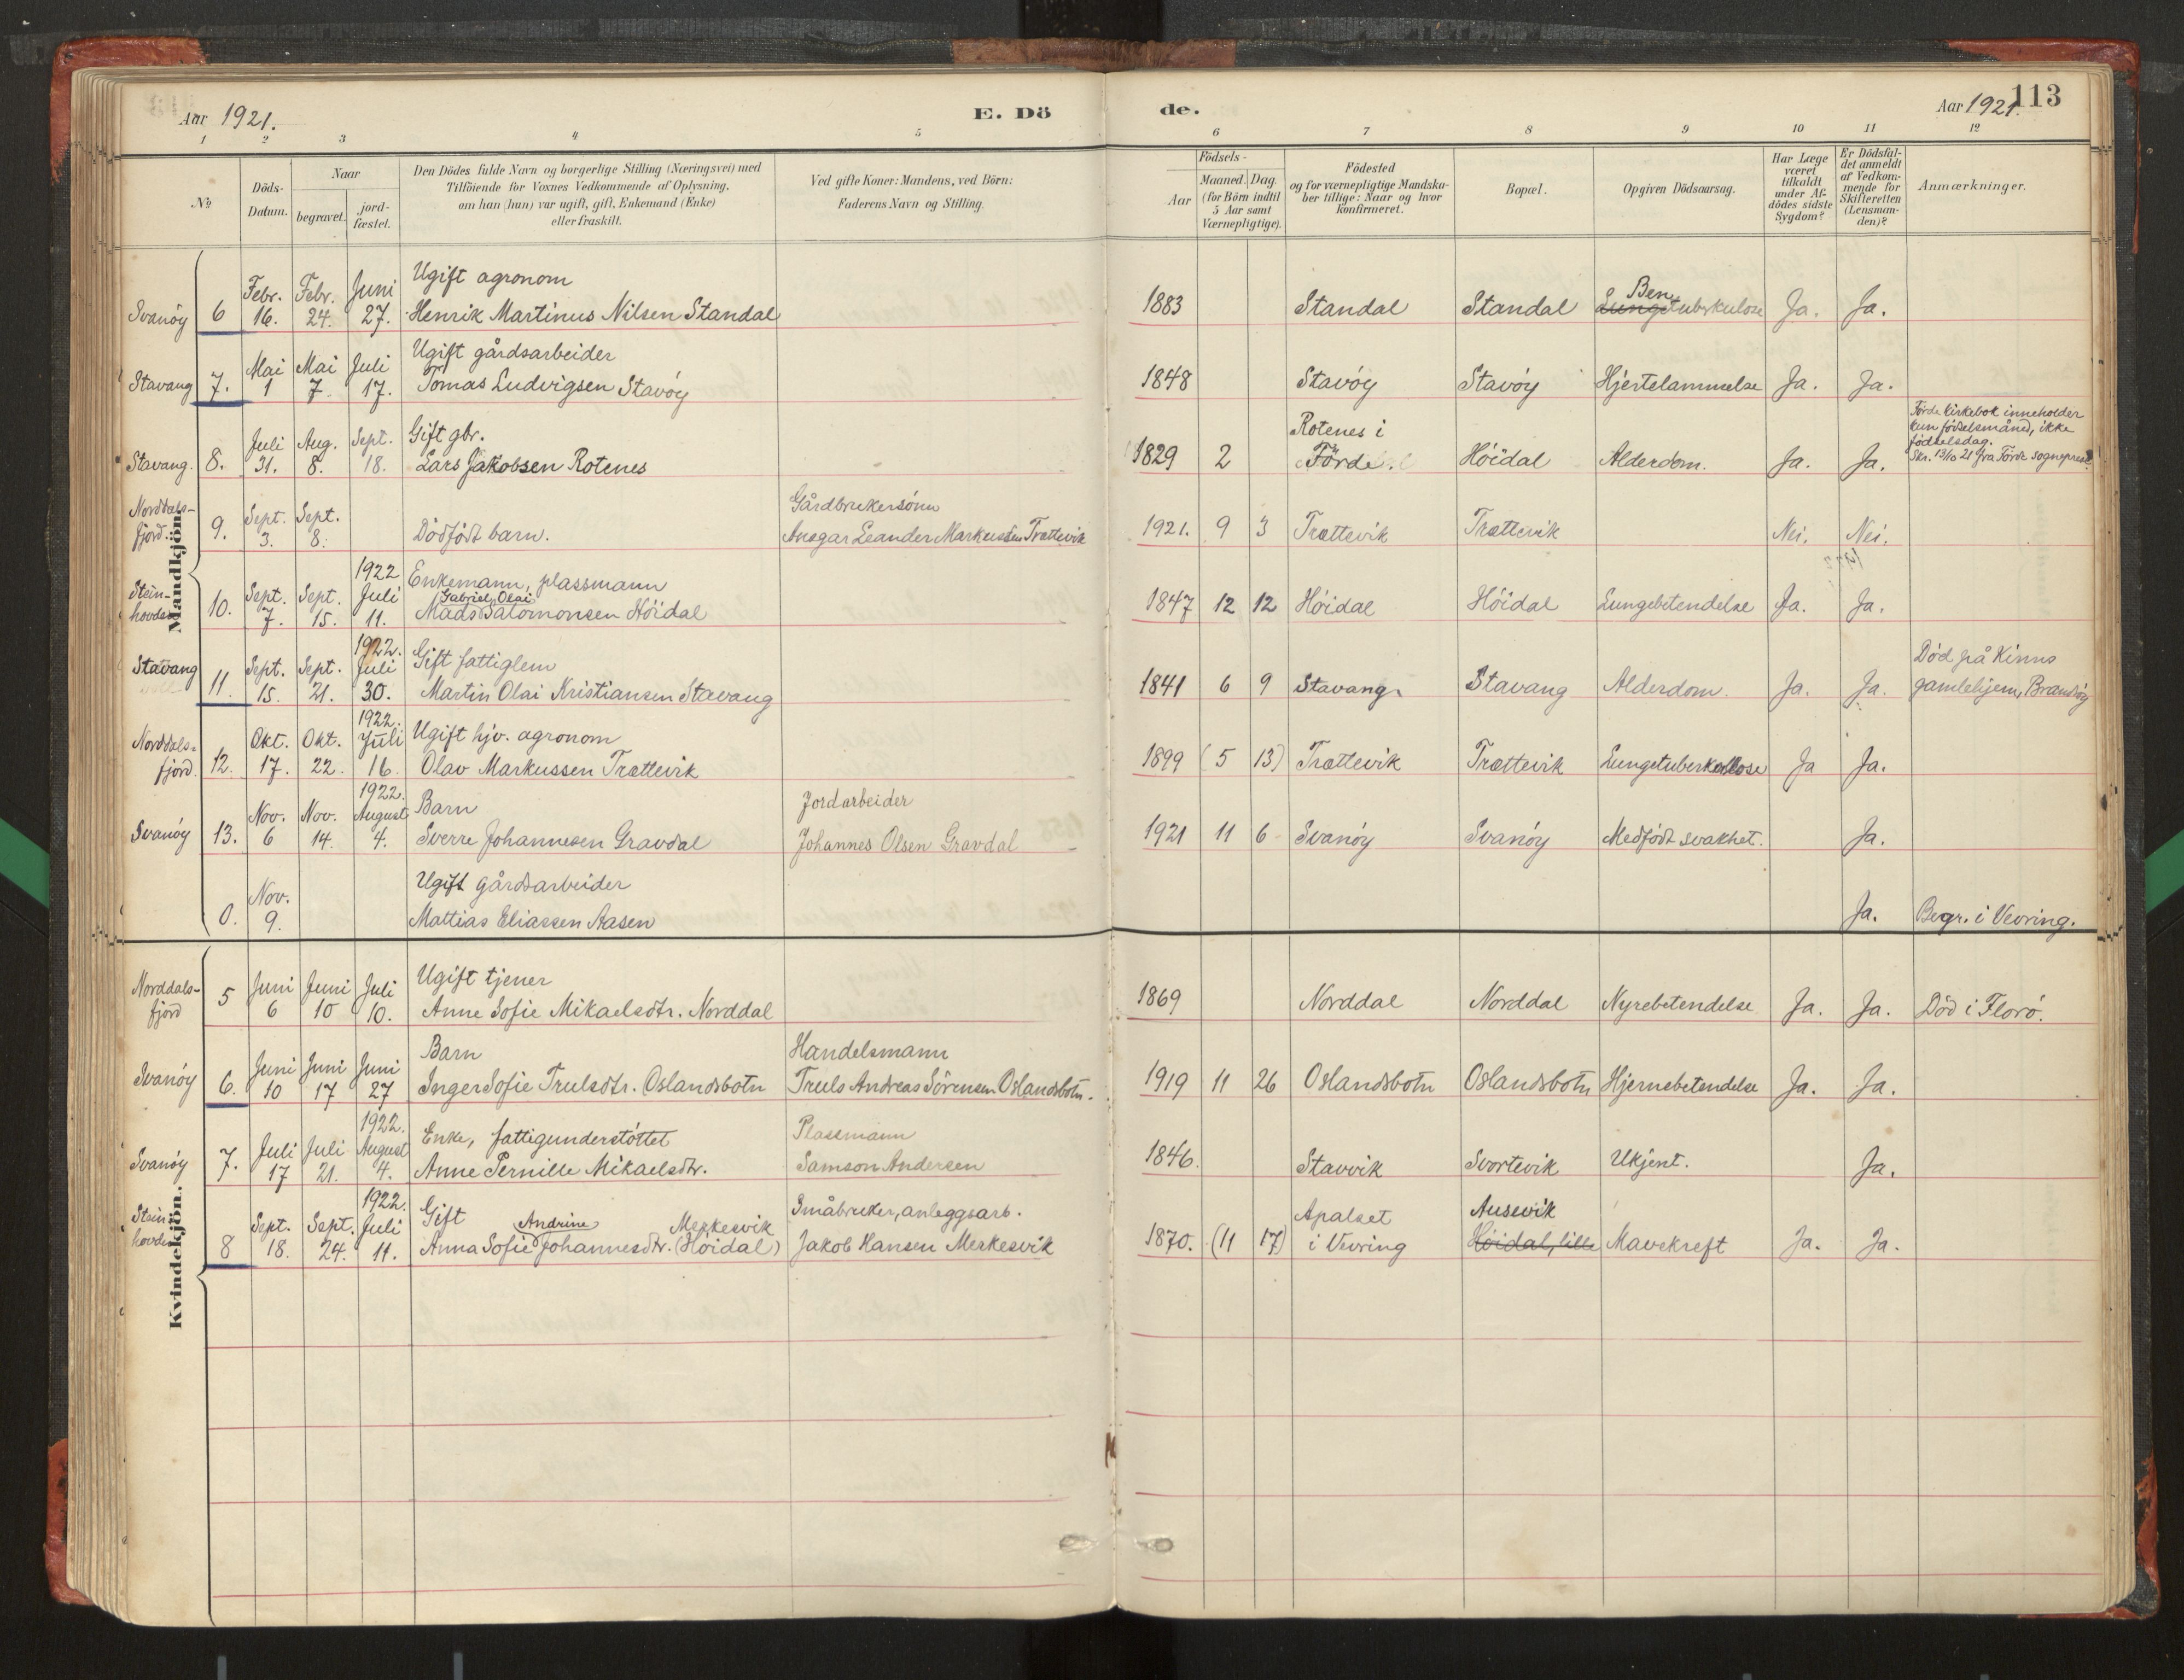 Aar 1921.
E. Dö
de.
Aar 1921.
113
1 2 3 4 5 6 7 8 9 10 11 12
No
Döds-
Datum.
Naar
begravet.
jord-
fæstet.
Den Dödes fulde Navn og borgerlige Stilling (Næringsvei) med
Tilföiende for Voxnes Vedkommende af Oplysning,
om han (hun) var ugift, gift, Enkemand (Enke)
eller fraskilt.
Ved gifte Koner: Mandens, ved Börn:
Faderens Navn og Stilling.
Födsels-
Aar
Maaned. Dag.
(for Börn indtil
5 Aar samt
Værnepligtige).
Födested
og for værnepligtige Mandska-
ber tillige: Naar og hvor
konfirmeret.
Bopæl.
Opgiven Dödsaarsag.
Har Læge
været
tilkaldt
under Af-
dödes sidste
Sygdom?
Er Dödsfal-
det anmeldt
af Vedkom-
mende for
Skifteretten
(Lensman-
den)?
Anmærkninger.
Mandkjön.
Febr. Febr. Juni Ugift agronom Ben
Svanöy 6 16. 24. 27. Henrik Martinus Nilsen Standal 1883 Standal Standal Lungetuberkulose Ja. Ja.
Mai Mai Juli Ugift gårdsarbeider
Stavang 7. 1 7. 17. Tomas Ludvigsen Stavöy 1848 Stavöy Stavöy Hjertelammelse Ja. Ja.
Juli Aug. Sept. Gift gbr. Rotenes i
Stavang. 8. 31. 8. 18. Lars Jakobsen Rotenes 1829 2 Förde Höidal Alderdom. Ja. Ja.
Förde kirkebok inneholder
kun födselsmåned, ikke
födselsdag.
Skr. 13/10 21 fra Förde sogneprest.
Norddals- Sept. Sept. Gårdbrukersönn
fjord. 9. 3. 8. Dödfödt barn. Ansgar Leander Markussen Trættevik 1921. 9 3 Trættevik Trættevik Nei. Nei.
1922 Enkemann, plassmann
Stein- Sept. Sept. Juli Gabriel Olai
hovden 10. 7. 15. 11. Mads Salomonsen Höidal 1847 12 12 Höidal Höidal Lungebetendelse Ja. Ja.
1922.
Stavang Sept. Sept. Juli Gift fattiglem Död på Kinns
11. 15. 21. 30. Martin Olai Kristiansen Stavang 1841 6 9 Stavang Stavang Alderdom. Ja. Ja. gamlehjem, Brandsöy
1922.
Norddals- Okt. Okt. Juli Ugift hjv. agronom
fjord. 12. 17. 22. 16. Olav Markussen Trættevik 1899 (5 13) Trættevik Trættevik Lungetuberkulose Ja Ja.
1922.
Nov. Nov. August Barn Jordarbeider
Svanöy 13. 6 14. 4. Sverre Johannesen Gravdal Johannes Olsen Gravdal 1921 11 6 Svanöy Svanöy Medfödt svakhet. Ja.
Nov. Ugift gårdsarbeider
0. 9. Mattias Eliassen Aasen Ja. Begr. i Vevring.
Kvindekjön.
Norddals- Juni Juni Juli Ugift tjener
fjord 5 6 10 10. Anne Sofie Mikaelsdtr. Norddal 1869 Norddal Norddal Nyrebetendelse Ja. Ja. Död i Florö.
Juni Juni Juni Barn Handelsmann
Svanöy 6. 10 17 27 Inger Sofie Trulsdtr. Oslandsbotn Truls Andreas Sörensen Oslandsbotn. 1919 11 26 Oslandsbotn Oslandsbotn Hjernebetendelse Ja. Ja.
1922.
Juli Juli August Enke, fattigunderstöttet Plassmann
Svanöy 7. 17 21. 4. Anne Pernille Mikaelsdtr. Samson Andersen 1846. Stavvik Svortevik Ukjent. Ja.
1922.
Stein- Sept. Sept. Juli Gift Andrine Merkesvik Småbruker, anleggsarb. Apalset Ausevik
hovden 8 18. 24. 11. Anna Sofie Johannesdtr. (Höidal) Jakob Hansen Merkesvik 1870. (11 17) i Vevring Höidal, lille Mavekreft Ja. Ja.